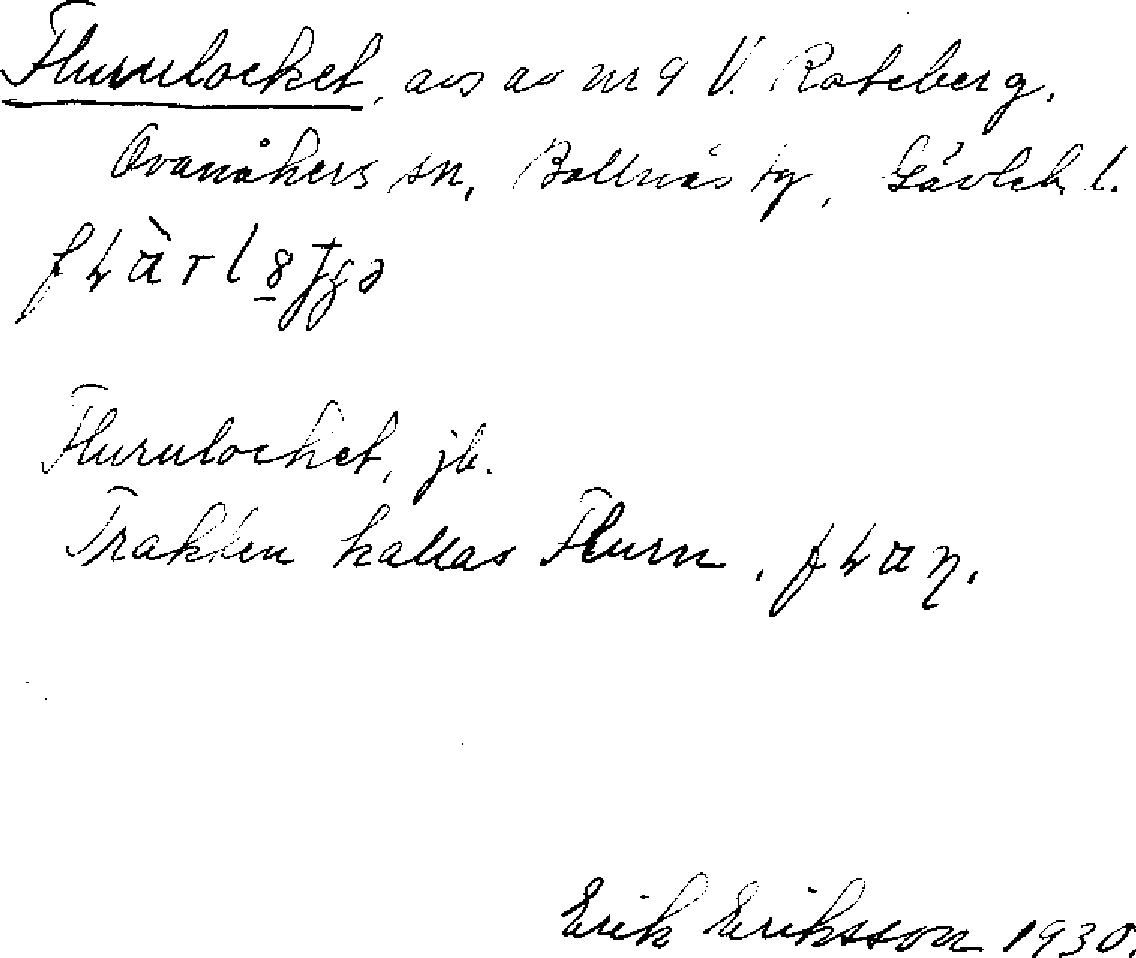 Flurulocket, avs av nr 9 V. Roteberg,
Ovanåkers sn, Bollnäs tg, Gävleb. l.
Flurulocket, jb.
Trakten kallas Flurn.
Erik Eriksson 1930.